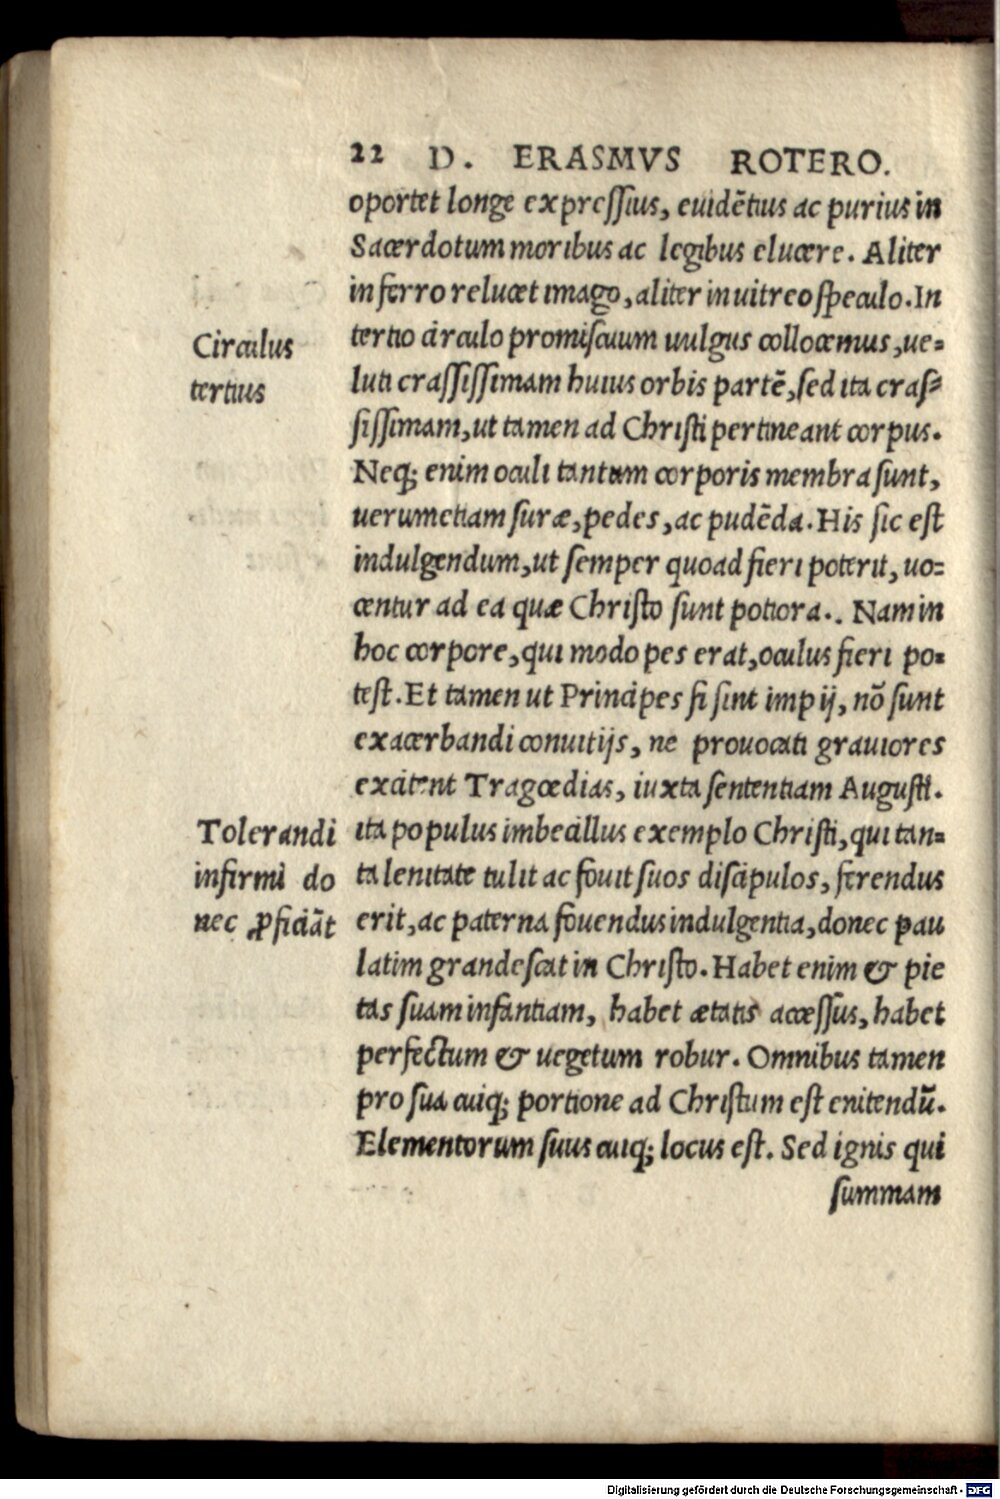 22 D. ERASMVS ROTERO.
oportet longe expressius, euidētius ac purius in
Sacerdotum moribus ac legibus elucere. Aliter
in ferro relucet imago, aliter in uitreo speculo. In
Circulus
tertius
tertio circulo promiscuum uulgus collocemus, ue=
luti crassissimam huius orbis partē, sed ita cras=
sissimam, ut tamen ad Christi pertineant corpus.
Neq; enim oculi tantum corporis membra sunt,
uerumetiam suræ, pedes, ac pudēda. His sic est
indulgendum, ut semper quoad fieri poterit, uo=
centur ad ea quæ Christo sunt potiora.. Nam in
hoc corpore, qui modo pes erat, oculus fieri po=
test. Et tamen ut Principes si sint impij, nō sunt
exacerbandi conuitijs, ne prouocati grauiores
excitent Tragœdias, iuxta sententiam Augusti.
Tolerandi
infirmi do
nec ꝓficiāt
ita populus imbecillus exemplo Christi, qui tan=
ta lenitate tulit ac fouit suos discipulos, ferendus
erit, ac paterna fouendus indulgentia, donec pau
latim grandescat in Christo. Habet enim & pie
tas suam infantiam, habet ætatis accessus, habet
perfectum & uegetum robur. Omnibus tamen
pro sua cuiq; portione ad Christum est enitendū.
Elementorum suus cuiq; locus est. Sed ignis qui
summam
Digitalisierung gefördert durch die Deutsche Forschungsgemeinschaft - DFG